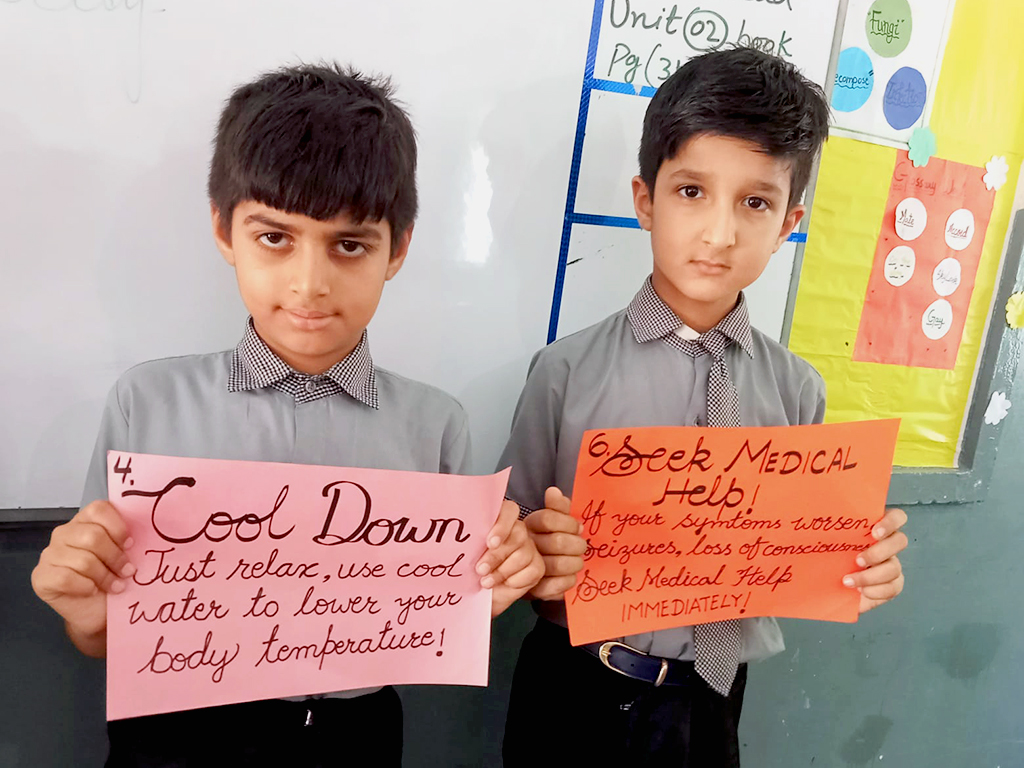 Unit (02) book
Pg (31
"Fungi"
ecompose"
Mate
Accord
Gay
4.
Cool Down
Just relax, use cool
water to lower your
body temperature!
6. Seek MEDICAL
Help!
If your symtoms worsen,
Seizures, loss of consciousness
Seek Medical Help
IMMEDIATELY!